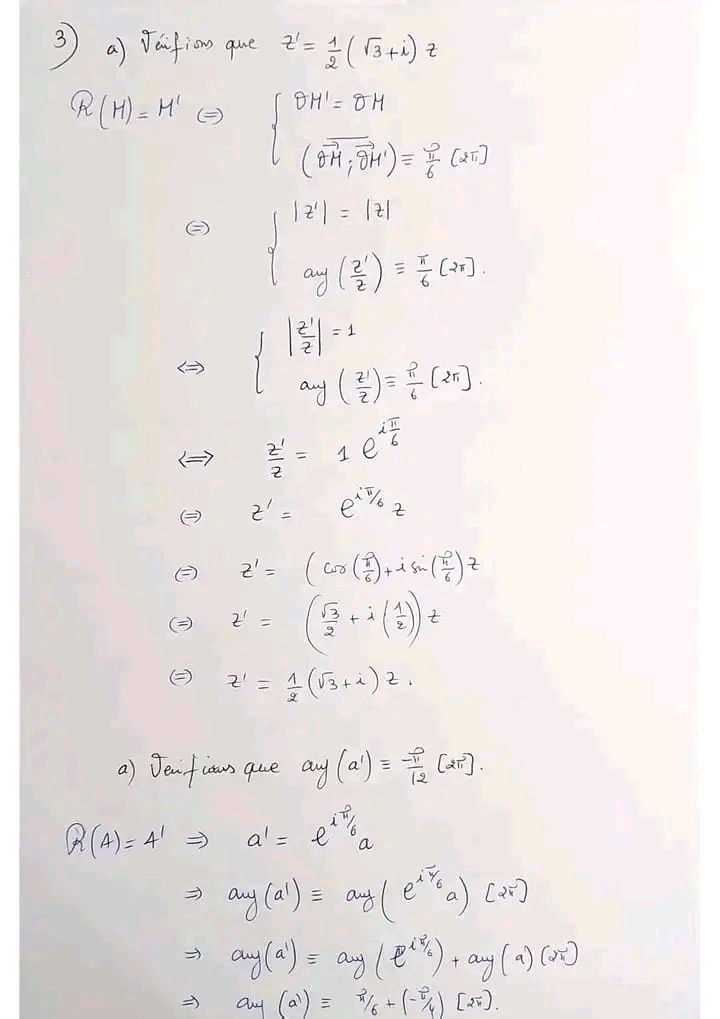 3) a) Vérifions que z' = 1/2 (√3 + i) z
R(M) = M' (=) { OM' = OM
(OM ; OM') ≡ π/6 [2π]
(=) { |z'| = |z|
arg (z'/z) ≡ π/6 [2π].
<=> { |z'/z| = 1
arg (z'/z) ≡ π/6 [2π].
<=> z'/z = 1 e^{iπ/6}
(=) z' = e^{iπ/6} z
(=) z' = (cos(π/6) + i sin(π/6) z
(=) z' = (√3/2 + i (1/2)) z
(=) z' = 1/2 (√3 + i) z.
a) Verifions que arg (a') ≡ -π/12 [2π].
R(A) = A' ⇒ a' = e^{iπ/6} a
⇒ arg (a') ≡ arg ( e^{iπ/6} a) [2π]
⇒ arg (a') ≡ arg (e^{iπ/6}) + arg (a) [2π]
⇒ arg (a') ≡ π/6 + (-π/4) [2π].